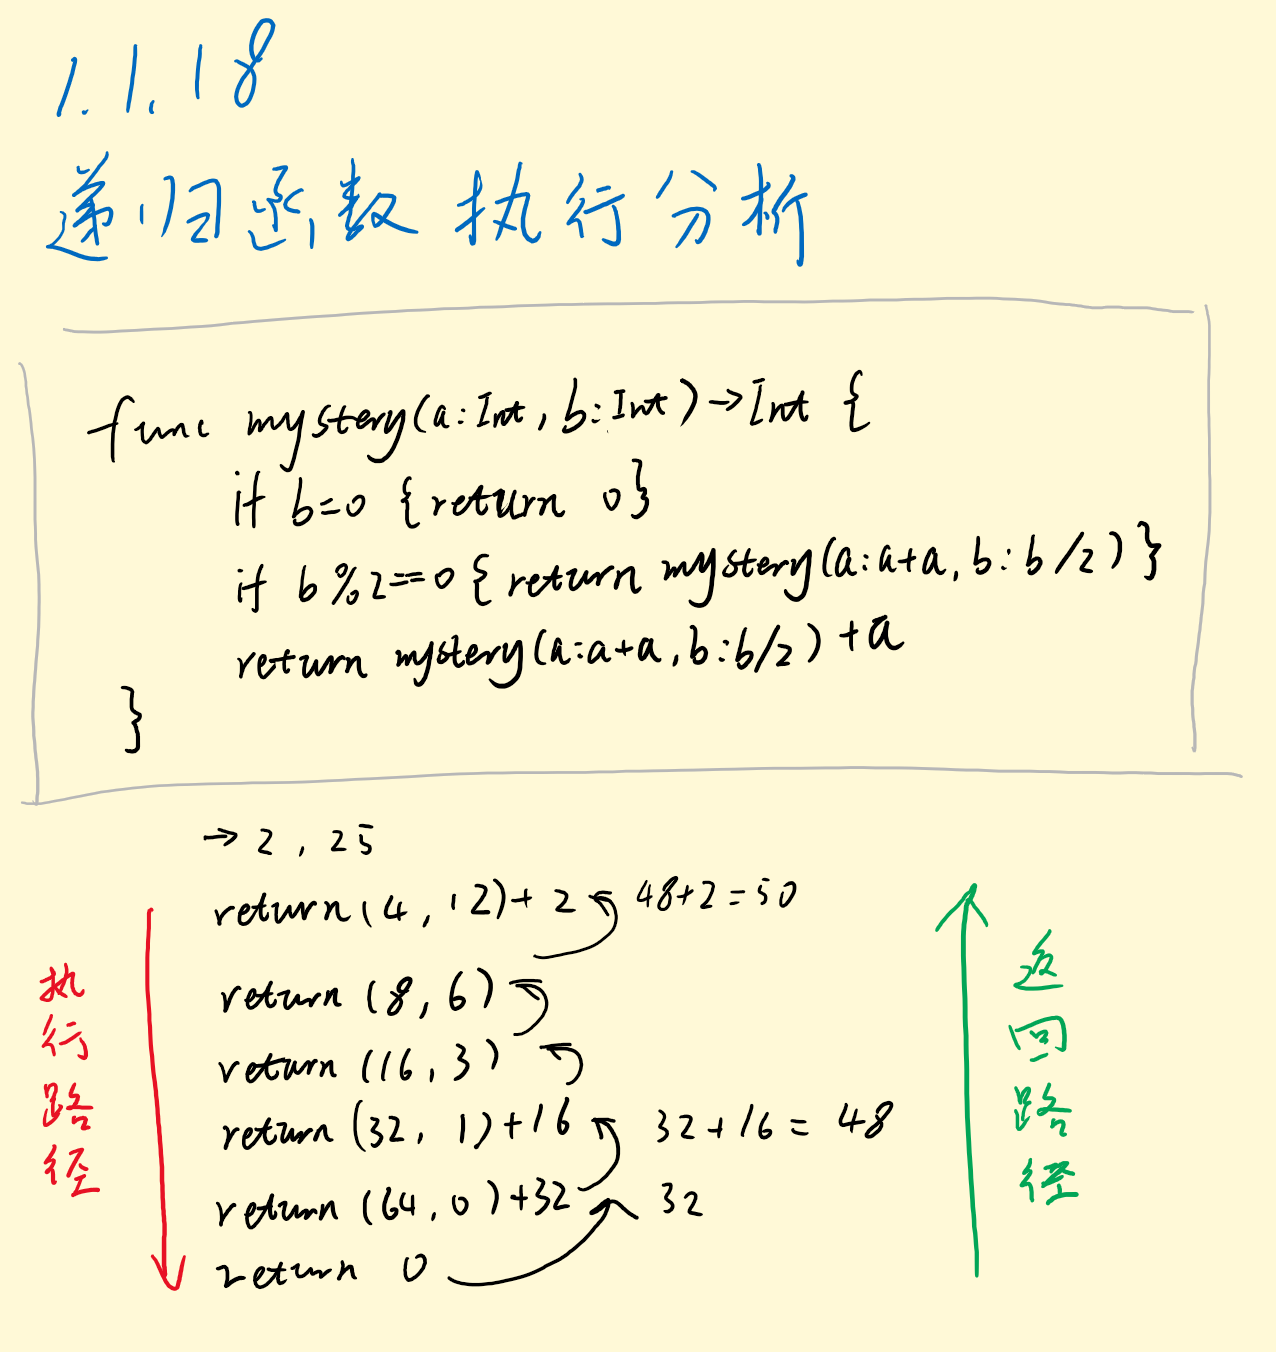 1.1.18
递归函数执行分析
func mystery(a:Int, b:Int)→Int {
if b=0 {return 0}
if b%2==0 {return mystery(a:a+a, b:b/2)}
return mystery(a:a+a, b:b/2)+a
}
→ 2, 25
return(4, 12)+2 48+2=50
return (8, 6)
return (16, 3)
return (32, 1)+16 32+16=48
return (64, 0)+32 32
return 0
执行路径
返回路径